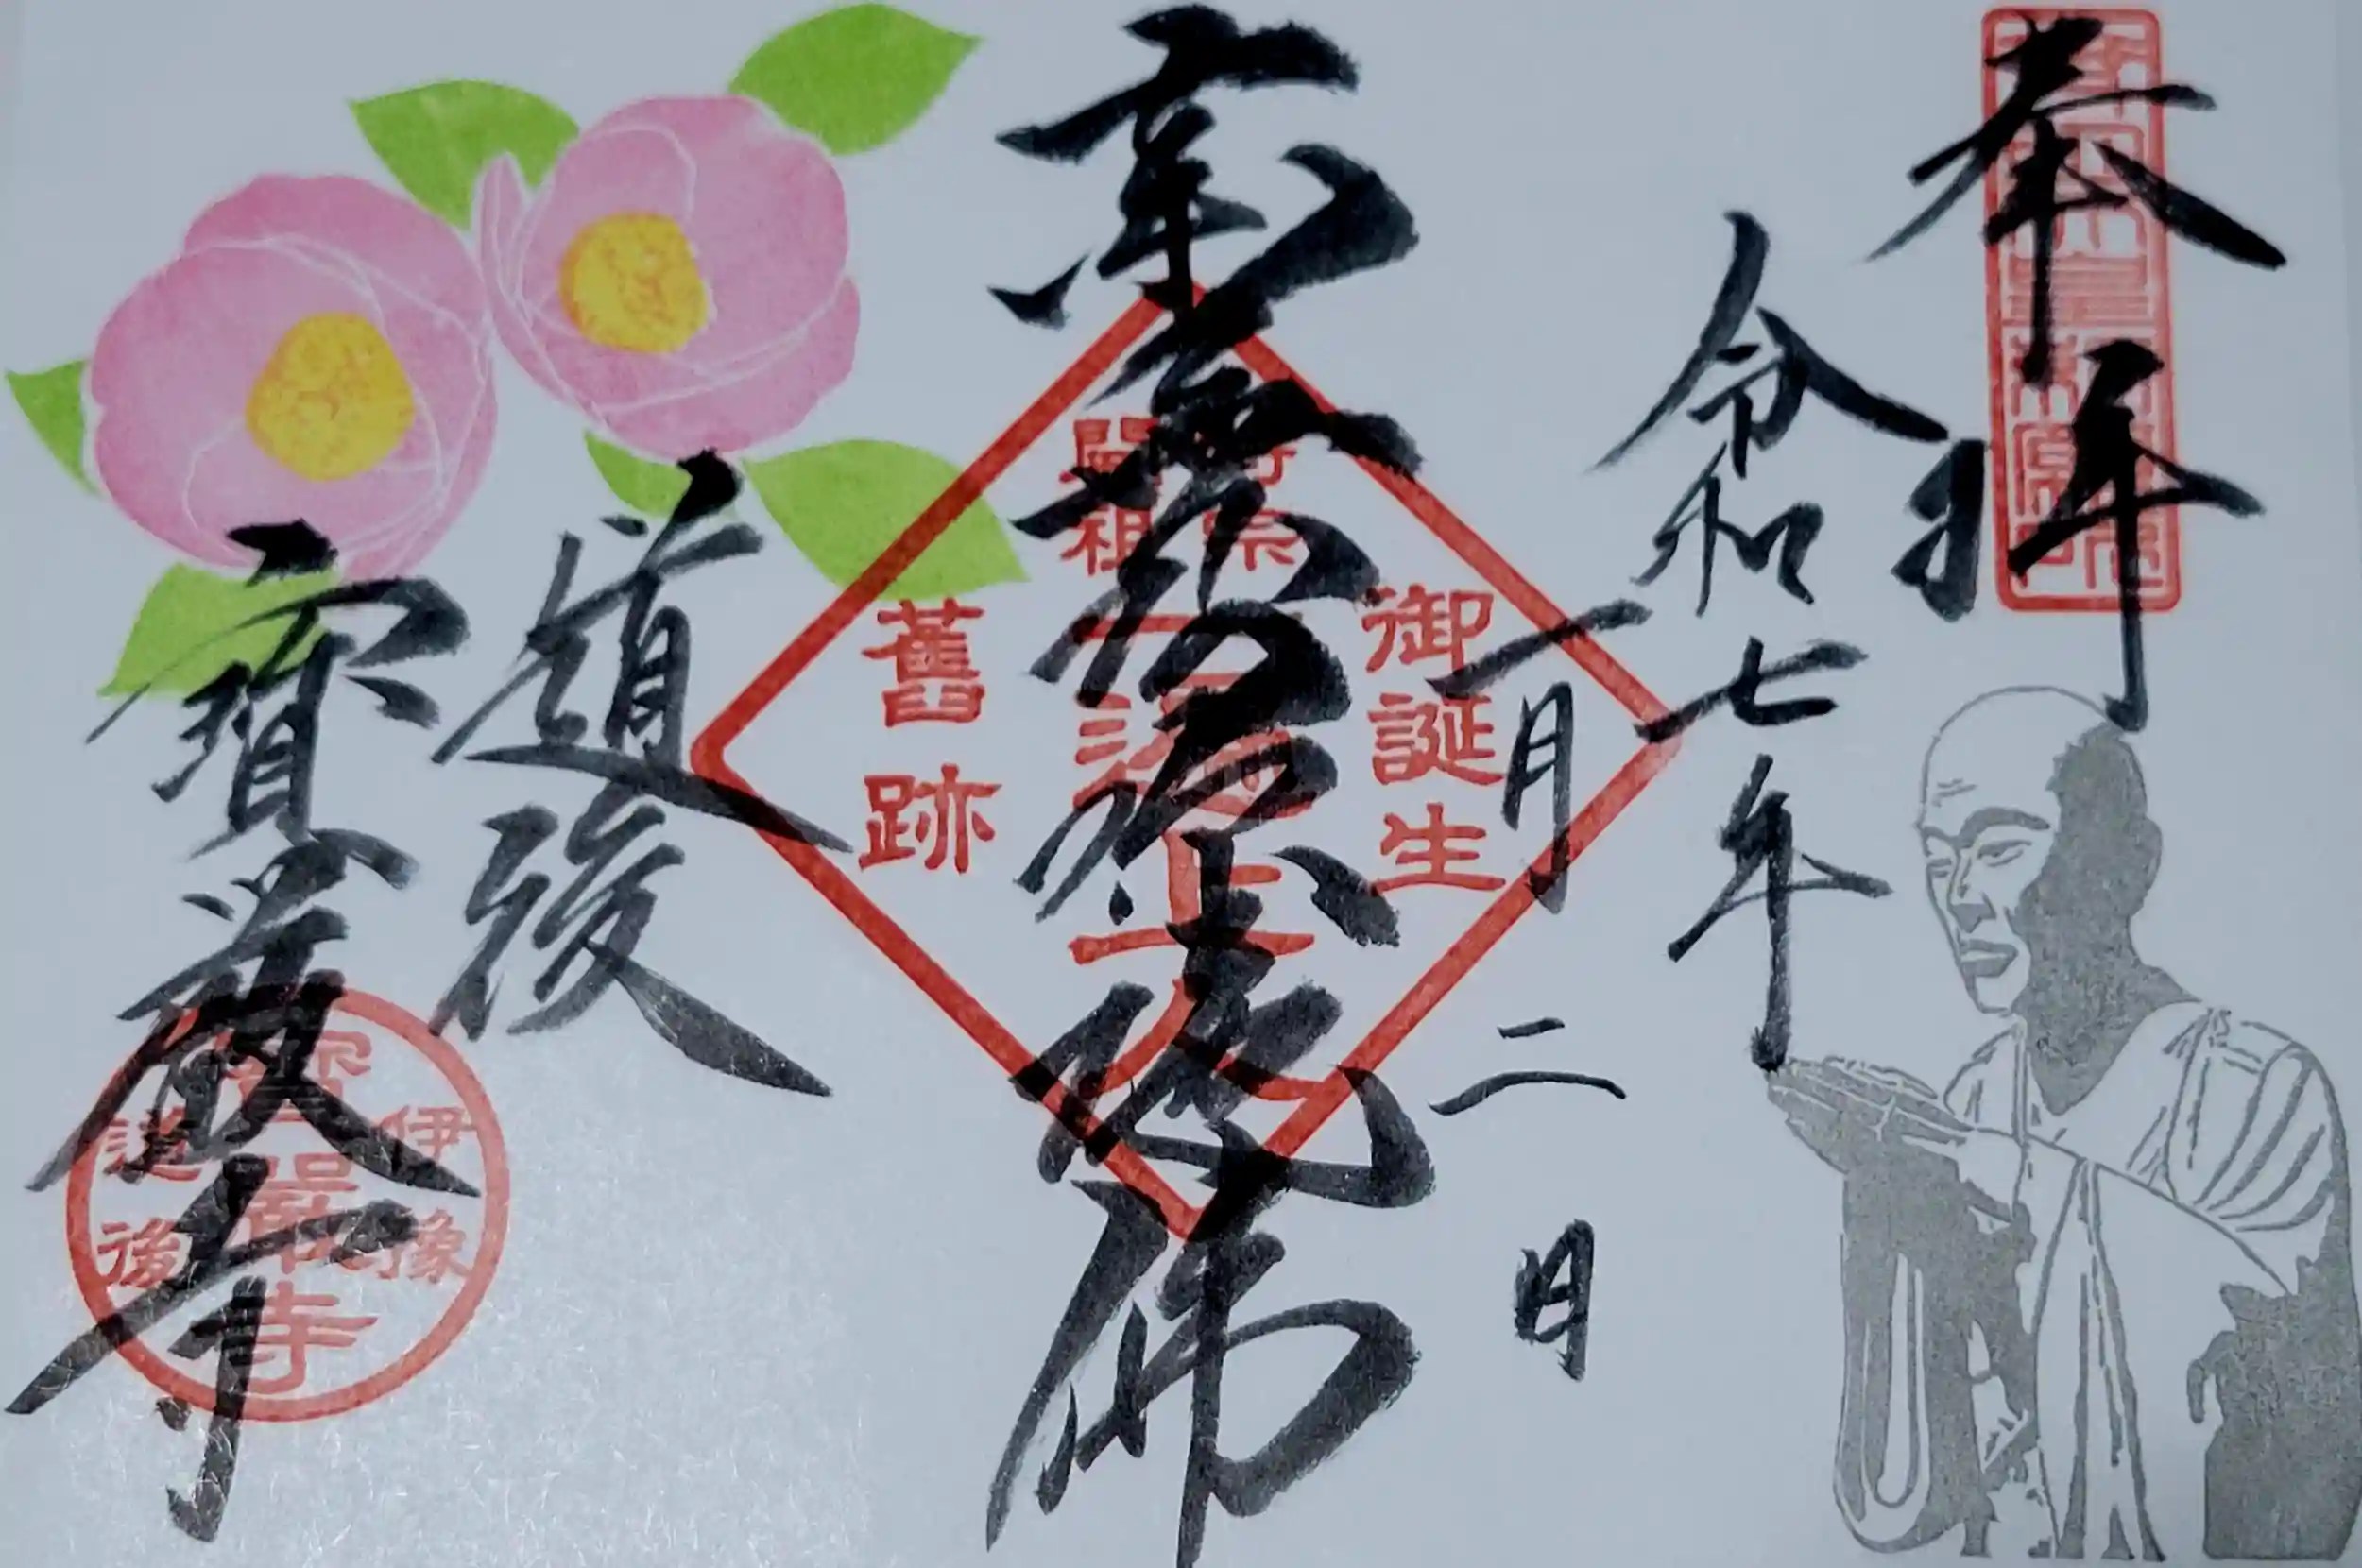 奉拝
令和七年
一月二日
時宗
開祖
御誕生
一遍上人
舊跡
南無阿弥陀佛
道後
寳嚴寺
伊豫
寶嚴寺
道後